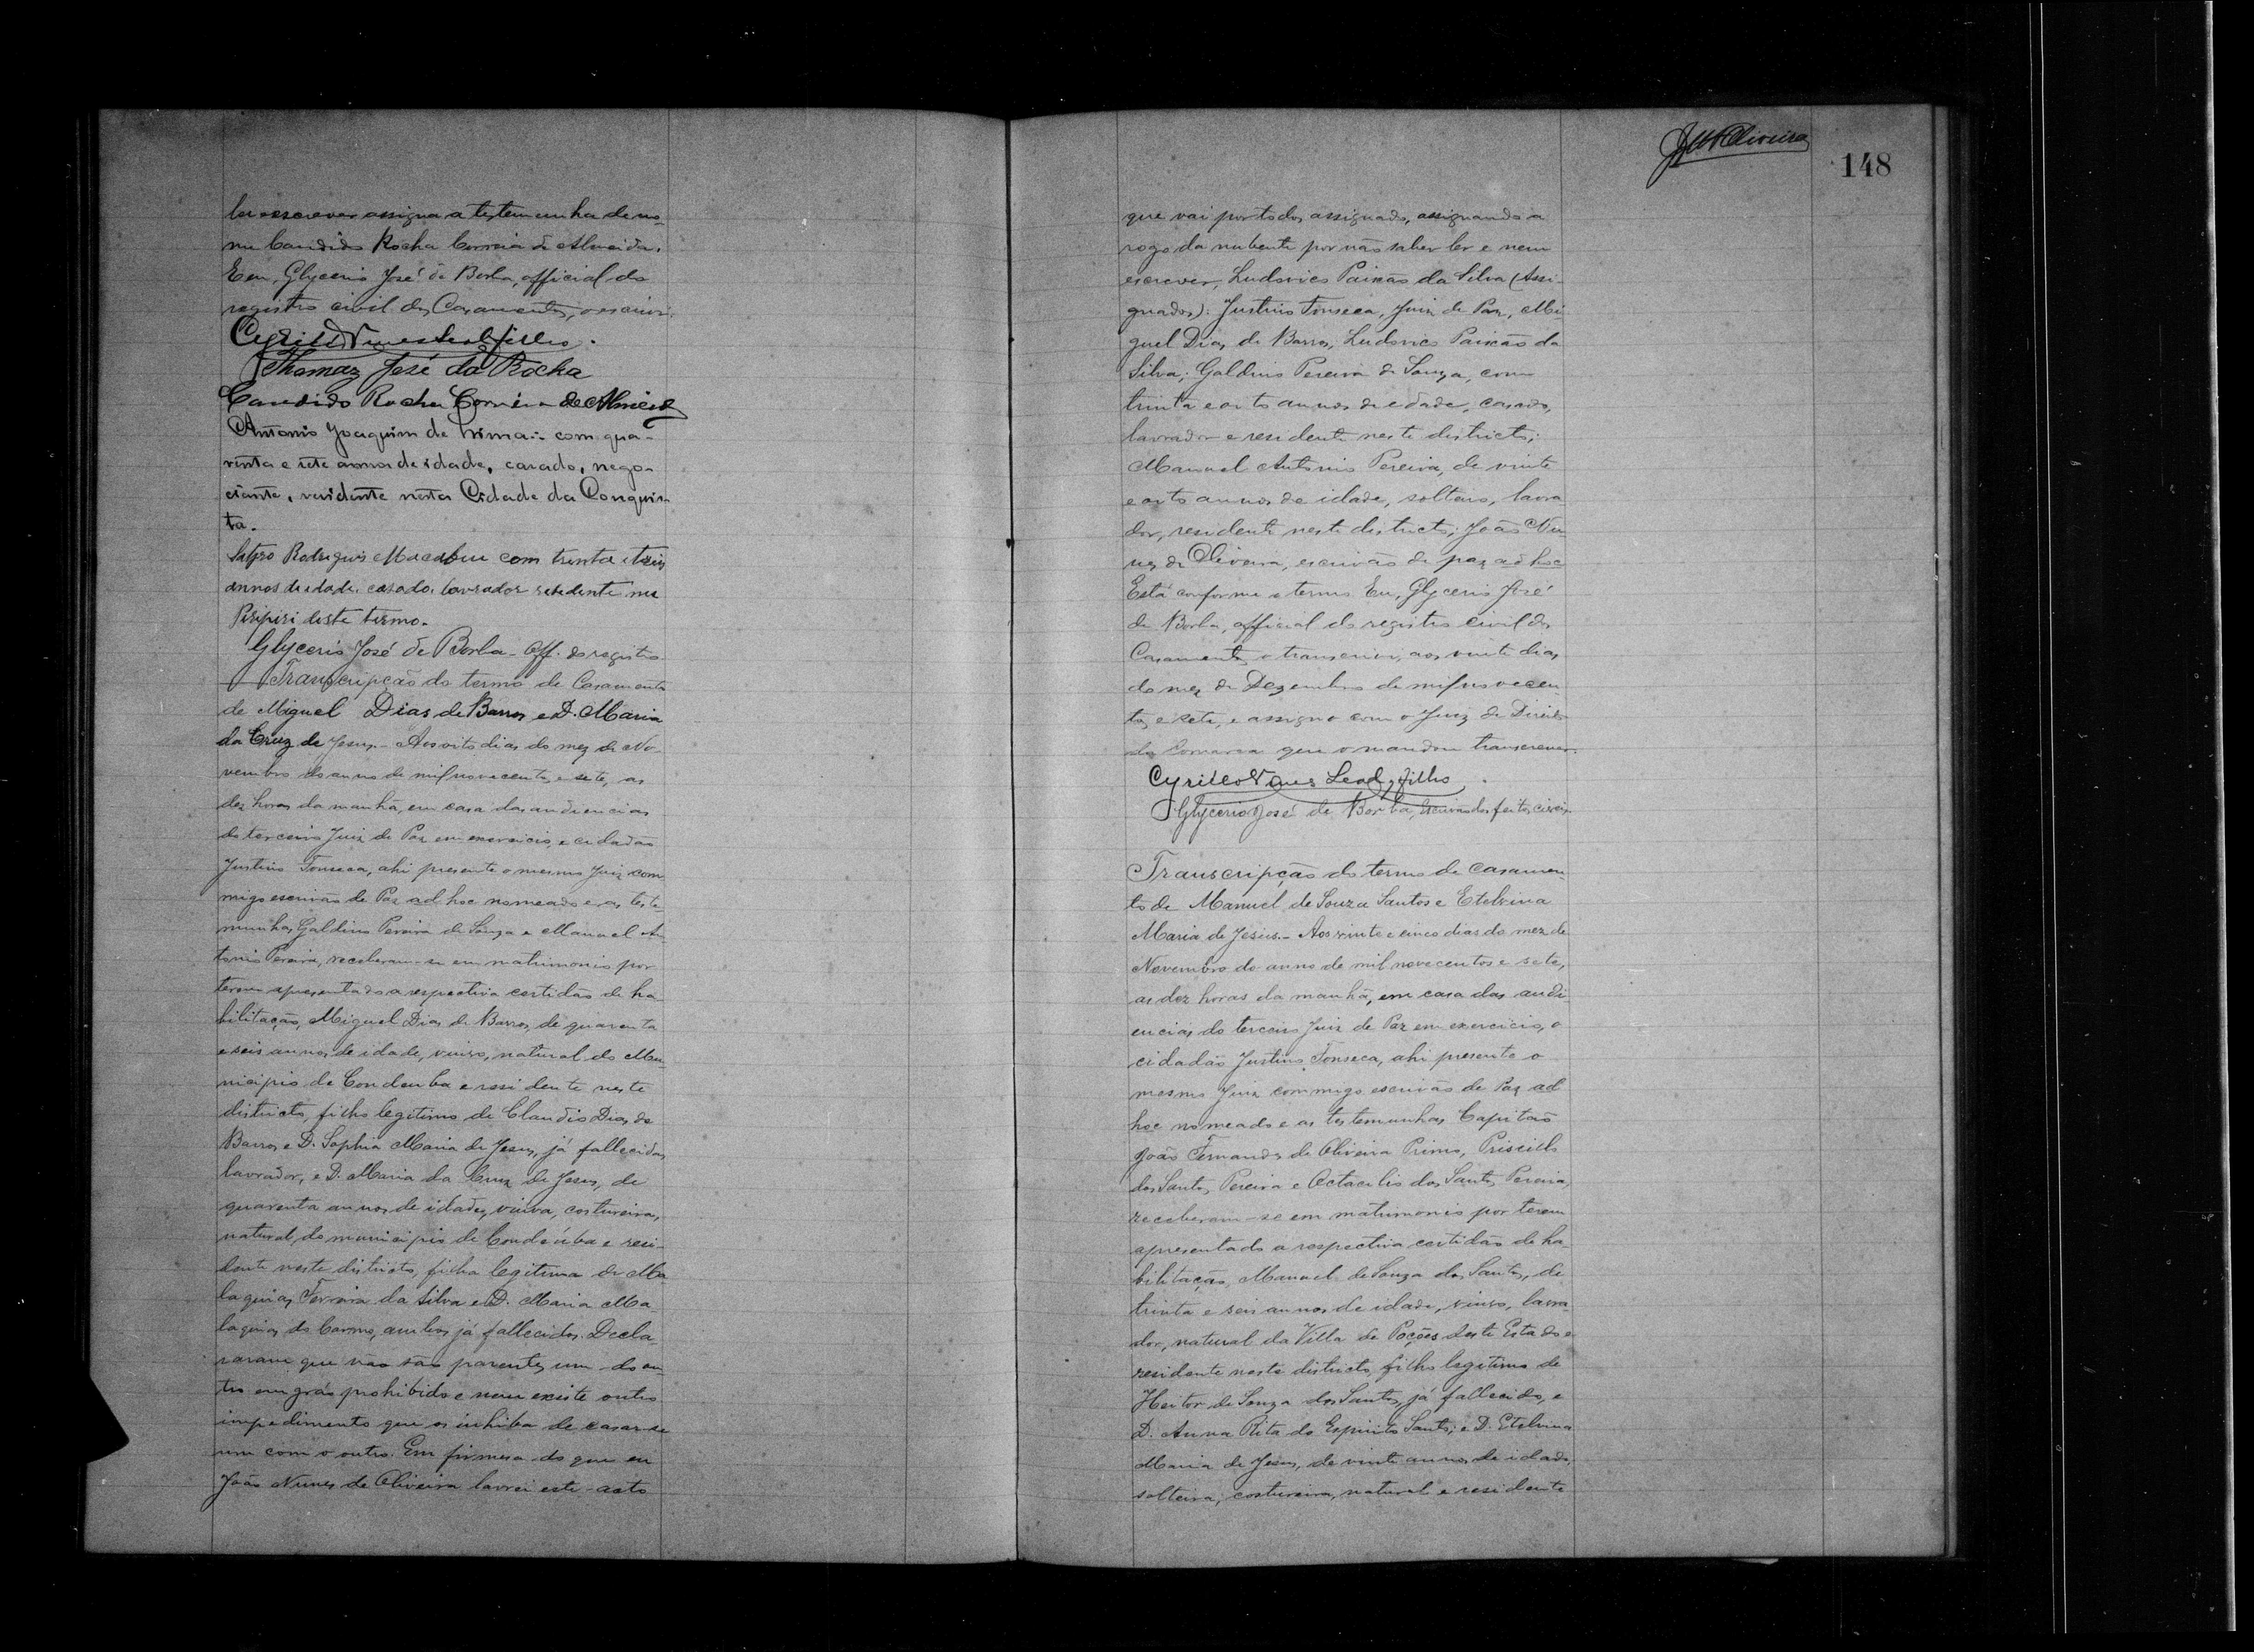 ler e escrever assigna a testemunha de no-
me Candido Rocha Correia de Almeida.
E eu, Glycerio José de Borba, official do
registro civil dos Casamentos, o escrivi.
Cyrillo Nunes Leal filho.
Thomaz José da Rocha
Candido Rocha Correia de Almeida
Antonio Joaquim de Lima: com qua-
renta e sete annos de idade, casado, nego-
ciante, residente nesta Cidade da Conquis-
ta.
Rodrigues Macabeu com trenta e treis
annos de idade, casado, lavrador residente no
Piripiri deste termo.
Glycerio José de Borba - Off. do registro
Transcripção do termo de Casamento
de Miguel Dias de Barros e D. Maria
da Cruz de Jesus. - Aos oito dias do mez de No-
vembro do anno de mil novecentos e sete, as
dez horas da manhã, em casa das audiencias
do terceiro Juiz de Paz em exercicio, o cidadão
Justino Fonseca, ahi presente o mesmo Juiz com
migo escrivão de Paz ad hoc nomeado e as teste-
munhas Galdino Pereira de Souza e Manoel An-
tonio Pereira, receberam-se em matrimonio por
terem apresentado a respectiva certidão de ha
bilitação, Miguel Dias de Barros, de quarenta
e seis annos de idade, viuvo, natural do Mu-
nicipio de Condeuba e residente neste
districto, filho legitimo de Claudio Dias de
Barros e D. Sophia Maria de Jesus, já fallecidos,
lavrador, e D. Maria da Cruz de Jesus, de
quarenta annos de idade, viuva, costureira,
natural do municipio de Condeúba e resi-
dente neste districto, filha legitima de Ma
laquias Ferreira da Silva e D. Maria Ma
laquias do Carmo, ambos já fallecidos. Decla-
raram que não são parentes um do ou-
tro em gráo prohibido e nem existe outro
impedimento que os inhiba de casar-se
um com o outro. Em firmesa do que eu
João Nunes de Oliveira lavrei este acto
148
que vai por todos assignado, assignando a
rogo da nubente por não saber ler e nem
escrever, Ludovico Paixão da Silva (Assi-
gnados): Justino Fonseca, Juiz de Paz, Mi-
guel Dias de Barros, Ludovico Paixão da
Silva; Galdino Pereira de Souza, com
trinta e oito annos de edade, casado,
lavrador e residente neste districto;
Manoel Antonio Pereira, de vinte
e oito annos de idade, solteiro, lavra
dor, residente neste districto; João Nu
nes de Oliveira, escrivão de paz ad hoc
Está conforme o termo. Eu, Glycerio José
de Borba, official do registro civil dos
Casamentos o transcrivi, aos vinte dias
do mez de Dezembro de mil novecen
tos e sete, e assigno com o Juiz de Direito
da Comarca que o mandou transcrever.
Cyrillo Nunes Leal filho.
Glycerio José de Borba, Escrivão dos feitos civeis
Transcripção do termo de Casamen-
to de Manuel de Souza Santos e Etelvina
Maria de Jesus. - Aos vinte e cinco dias do mez de
Novembro do anno de mil novecentos e sete,
as dez horas da manhã, em casa das audi
encias do terceiro Juiz de Paz em exercicio, o
cidadão Justino Fonseca, ahi presente o
mesmo Juiz commigo escrivão de Paz ad
hoc nomeado e as testemunhas Capitão
João Fernandes de Oliveira Primo, Priscillo
dos Santos Pereira e Octacilio dos Santos Pereira,
receberam-se em matrimonio por terem
apresentado a respectiva certidão de ha-
bilitação, Manuel de Souza dos Santos, de
trinta e seis annos de idade, viuvo, lavra-
dor, natural da Villa de Poções deste Estado e
residente neste districto, filho legitimo de
Heitor de Souza dos Santos, já fallecido, e
D. Anna Rita do Espirito Santo; e D. Etelvina
Maria de Jesus, de vinte annos de idade,
solteira, costureira, natural e residente